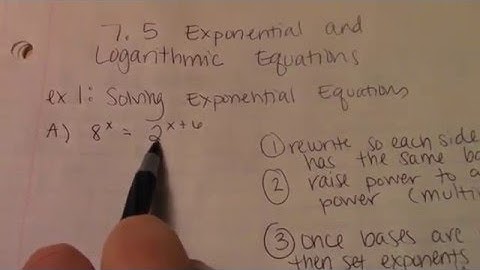 7.5 Exponential and
Logarithmic Equations
ex 1: Solving Exponential Equations
A) 8^x = 2^x+6
① rewrite so each side
has the same
② raise power to a
power
③ once bases are
then set exponents